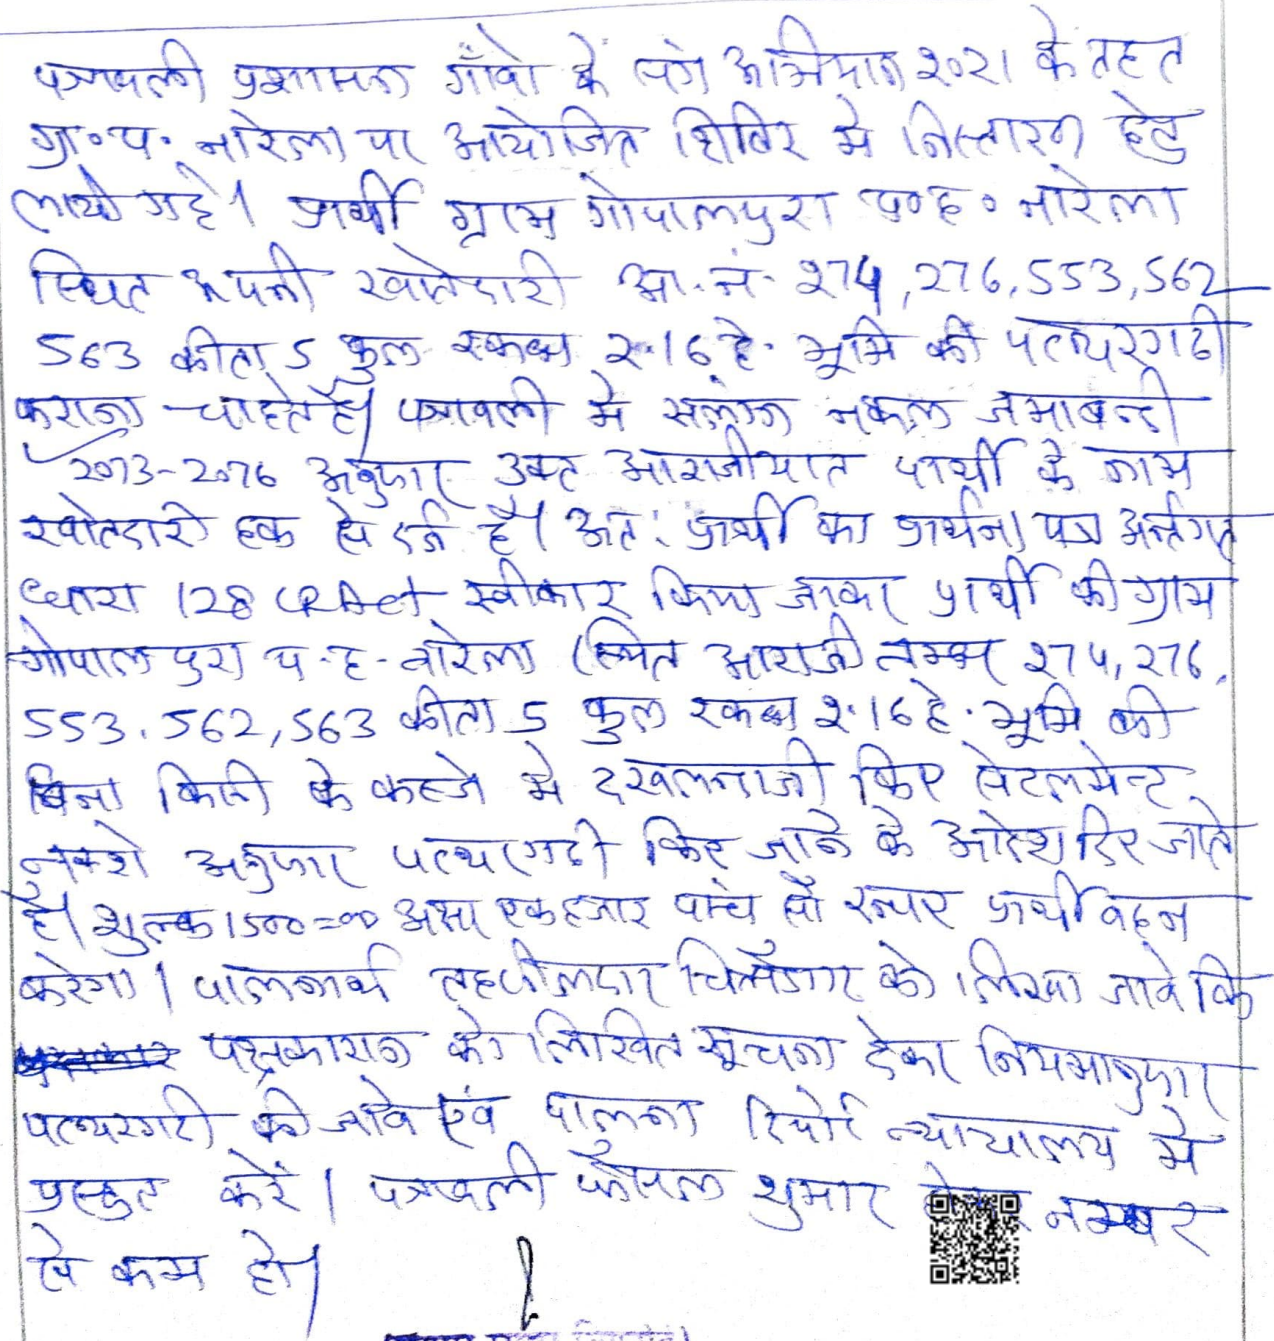 पत्रावली प्रशासन गाँवो के संग अभियान 2021 के तहत
ग्रा०पं० नारेला पर आयोजित शिविर मे निस्तारण हेतु
लायी गई। प्रार्थी ग्राम गोपालपुरा प०ह० नारेला
स्थित अपनी खातेदारी आ.नं. 274, 276, 553, 562
563 कीता 5 कुल रकबा 2.16 है. भूमि की पत्थरगढी
कराना चाहते है। पत्रावली मे सलंग्न नकल जमाबन्दी
2073-2076 अनुसार उक्त आराजीयात प्रार्थी के नाम
खातेदारी हक से दर्ज है। अतः प्रार्थी का प्रार्थना पत्र अर्न्तगत
धारा 128 LR Act स्वीकार किया जाकर प्रार्थी की ग्राम
गोपालपुरा प.ह. नारेला स्थित आराजी नम्बर 274, 276,
553, 562, 563 कीता 5 कुल रकबा 2.16 है. भूमि की
बिना किसी के कब्जे मे दखलन्दाजी किए सेटलमेन्ट
नक्शे अनुसार पत्थरगढी किए जाने के आदेश दिए जाते
है। शुल्क 1500=00 अक्षर एक हजार पांच सौ रुपए प्रार्थी वहन
करेगा। पालनार्थ तहसीलदार चित्तौडगढ को लिखा जावे कि
पक्षकारान को लिखित सूचना देकर नियमानुसार
पत्थरगढी की जावे एवं पालना रिपोर्ट न्यायालय मे
प्रस्तुत करें। पत्रावली फैसल शुमार होकर नम्बर
से कम हो।